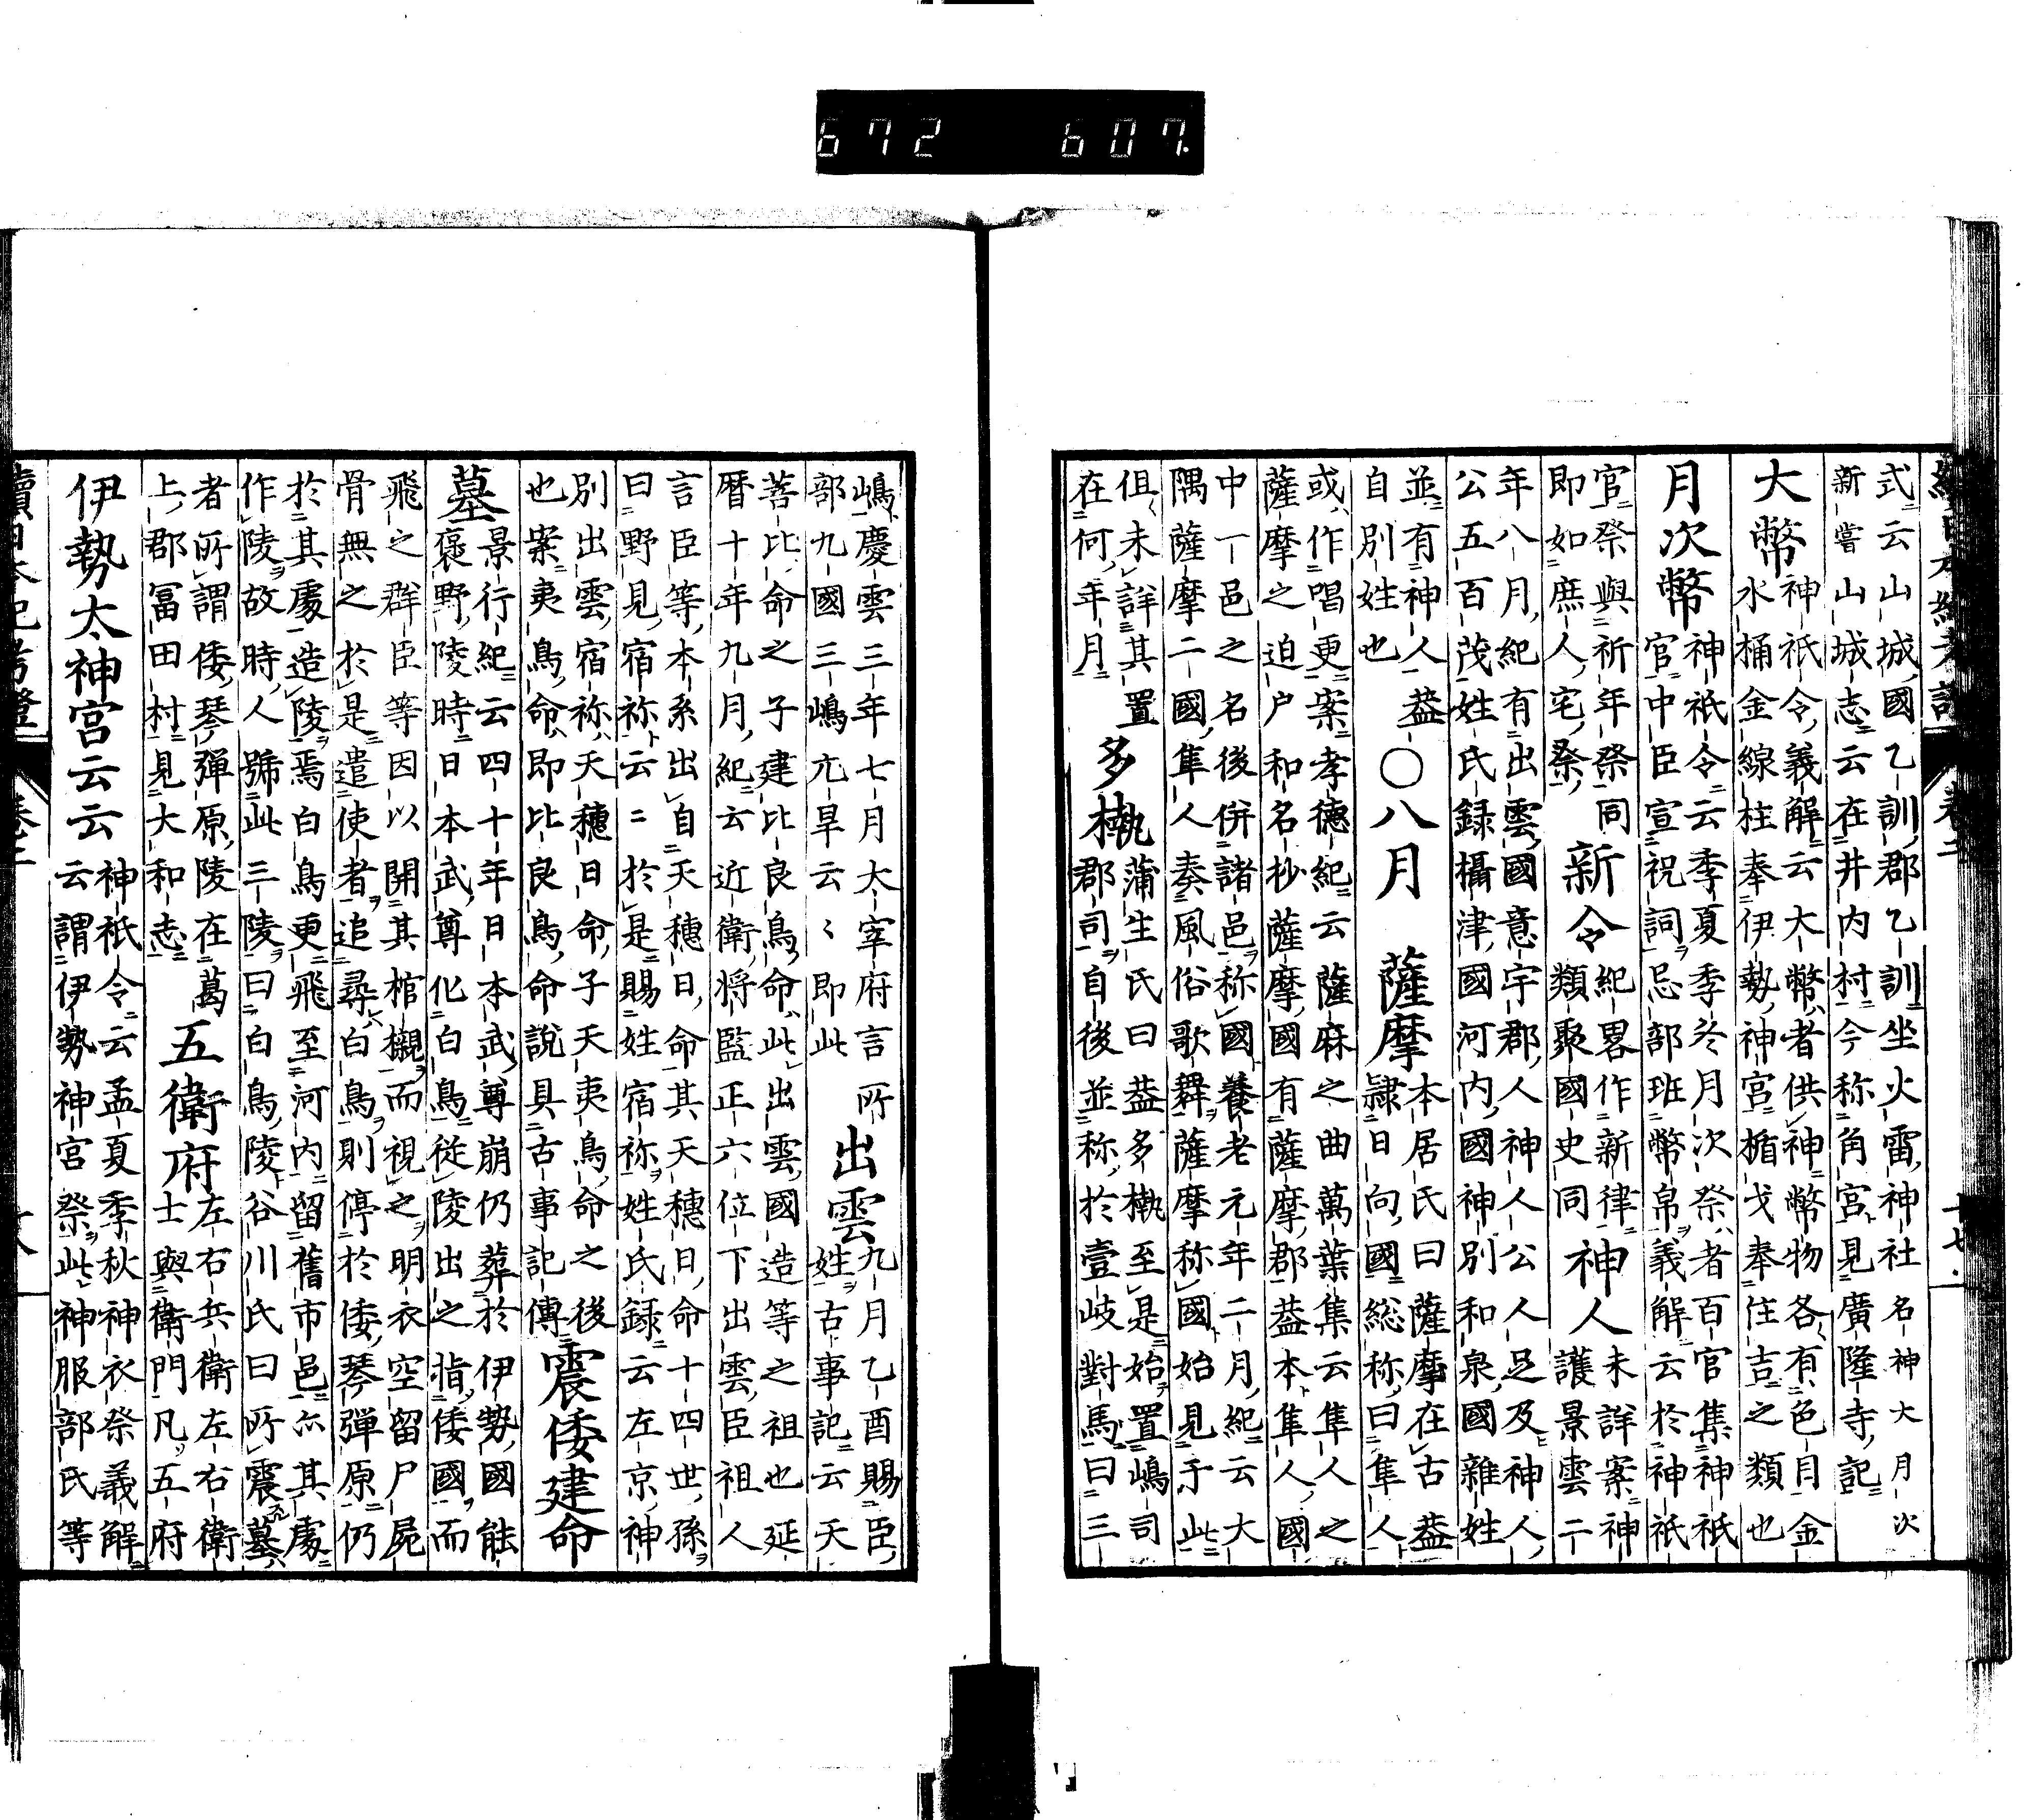 672 607.
式云山城國乙訓郡乙訓坐火雷神社名神大月次
新嘗山城志云在井内村今称角宮見廣隆寺記
大幣神祇令義解云大幣者供神幣物各有色目金
水桶金線柱奉伊勢神宮楯戈奉住吉之類也
月次幣神祇令云季夏季冬月次祭者百官集神祇
官中臣宣祝詞忌部班幣帛義解云於神祇
官祭與祈年祭同
即如庶人宅祭
新令紀畧作新律
類聚國史同
神人未詳案神
護景雲二
年八月紀有出雲國意宇郡人神人公人足及神人
公五百茂姓氏録攝津國河内國神別和泉國雜姓
並有神人蓋
自別姓也
○八月
薩摩本居氏曰薩摩在古蓋
隷日向國総称曰隼人
或作唱更案孝德紀云薩麻之曲萬葉集云隼人之
薩摩之迫户和名抄薩摩國有薩摩郡蓋本隼人國
中一邑之名後併諸邑称國養老元年二月紀云大
隅薩摩二國隼人奏風俗歌舞薩摩称國始見于此
俱未詳其置
在何年月
多褹蒲生氏曰蓋多褹至是始置嶋司
郡司自後並称於壹岐對馬曰三
嶋慶雲三年七月大宰府言所
部九國三嶋亢旱云〻即此
出雲九月乙酉賜臣
姓古事記云天
菩比命之子建比良鳥命此出雲國造等之祖也延
暦十年九月紀云近衛將監正六位下出雲臣祖人
言臣等本系出自天穗日命其天穗日命十四世孫
曰野見宿祢云〻於是賜姓宿祢姓氏録云左京神
別出雲宿祢天穗日命子天夷鳥命之後
也案夷鳥命即比良鳥命說具古事記傳
震倭建命
墓景行紀云四十年日本武尊崩仍葬於伊勢國能
褒野陵時日本武尊化白鳥從陵出之指倭國而
飛之群臣等因以開其棺櫬而視之明衣空留尸屍
骨無之於是遣使者追尋白鳥則停於倭琴彈原仍
於其處造陵焉白鳥更飛至河内留舊市邑亦其處
作陵故時人號此三陵曰白鳥陵谷川氏曰所震墓
者所謂倭琴彈原陵在葛
上郡冨田村見大和志
五衛府左右兵衛左右衛
士與衛門凡五府
伊勢太神宮云云神祇令云孟夏季秋神衣祭義解
云謂伊勢神宮祭此神服部氏等